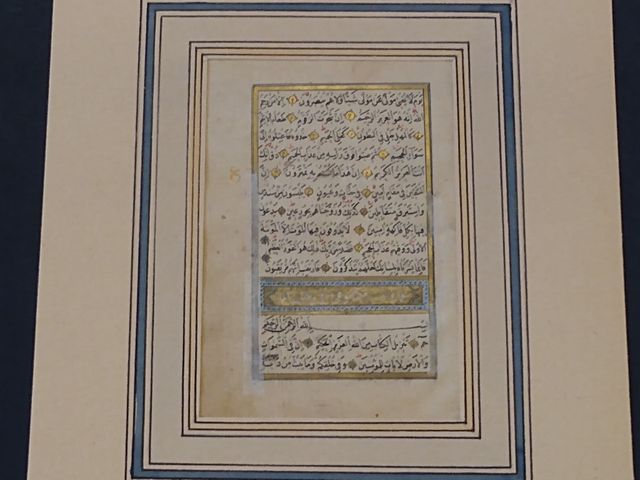 يَوْمَ لَا يُغْنِي مَوْلًى عَنْ مَوْلًى شَيْئًا وَلَا هُمْ يُنْصَرُونَ اِلَّا مَنْ رَحِمَ
اللّٰهُ اِنَّهُ هُوَ الْعَزِيزُ الرَّحِيمُ اِنَّ شَجَرَتَ الزَّقُّومِ طَعَامُ الْاَثِيمِ
كَالْمُهْلِ يَغْلِي فِي الْبُطُونِ كَغَلْيِ الْحَمِيمِ خُذُوهُ فَاعْتِلُوهُ اِلٰى
سَوَاءِ الْجَحِيمِ ثُمَّ صُبُّوا فَوْقَ رَأْسِهِ مِنْ عَذَابِ الْحَمِيمِ ذُقْ اِنَّكَ
اَنْتَ الْعَزِيزُ الْكَرِيمُ اِنَّ هٰذَا مَا كُنْتُمْ بِهِ تَمْتَرُونَ اِنَّ
الْمُتَّقِينَ فِي مَقَامٍ اَمِينٍ فِي جَنَّاتٍ وَعُيُونٍ يَلْبَسُونَ مِنْ سُنْدُسٍ
وَاِسْتَبْرَقٍ مُتَقَابِلِينَ كَذٰلِكَ وَزَوَّجْنَاهُمْ بِحُورٍ عِينٍ يَدْعُونَ
فِيهَا بِكُلِّ فَاكِهَةٍ اٰمِنِينَ لَا يَذُوقُونَ فِيهَا الْمَوْتَ اِلَّا الْمَوْتَةَ
الْاُولٰى وَوَقٰيهُمْ عَذَابَ الْجَحِيمِ فَضْلًا مِنْ رَبِّكَ ذٰلِكَ هُوَ الْفَوْزُ الْعَظِيمُ
فَاِنَّمَا يَسَّرْنَاهُ بِلِسَانِكَ لَعَلَّهُمْ يَتَذَكَّرُونَ فَارْتَقِبْ اِنَّهُمْ مُرْتَقِبُونَ
بِسْمِ اللّٰهِ الرَّحْمٰنِ الرَّحِيمِ
حٰمٓ تَنْزِيلُ الْكِتَابِ مِنَ اللّٰهِ الْعَزِيزِ الْحَكِيمِ اِنَّ فِي السَّمٰوَاتِ
وَالْاَرْضِ لَاٰيَاتٍ لِلْمُؤْمِنِينَ وَفِي خَلْقِكُمْ وَمَا يَبُثُّ مِنْ دَابَّةٍ